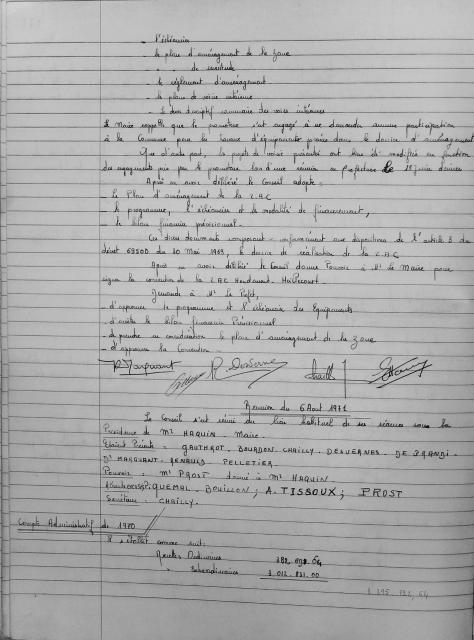 - l'échéancier
- le plan d'aménagement de la zone
- " de servitude
- le règlement d'aménagement
- le plan de voirie intérieure
- le devis descriptif sommaire des voiries intérieures
Le Maire rappelle que le promoteur s'est engagé à ne demander aucune participation
à la Commune pour les travaux d'équipements prévus dans le dossier d'aménagement
Que d'autre part, les projets de voirie présentés ont bien été modifiés en fonction
des engagements pris par le promoteur lors d'une réunion en Préfecture le juin dernier
Après en avoir délibéré le Conseil adopte :
- Le Plan d'aménagement de la Z.A.C
- le programme, l'échéancier et les modalités de financement,
- le bilan financier prévisionnel.
Ces divers documents composant - conformément aux dispositions de l'article 3 du
décret 69500 du 30 Mai 1969, le dossier de réalisation de la Z.A.C
Après en avoir délibéré le Conseil donne Pouvoir à Mr Le Maire pour
signer la convention de la Z.A.C
Demande à Mr Le Préfet,
- d'approuver le programme et l'échéancier des Equipements
- d'arrêter le bilan financier Prévisionnel
- de prendre en considération le plan d'aménagement de la zone
- d'approuver la Convention -
Réunion du 6 Aout 1971
Le Conseil s'est réuni au lieu habituel de ses séances sous la
Présidence de Mr HAQUIN - Maire.
Etaient Présents : GAUTHROT. BOURDON. CHAILLY. DESVERNES. DE BRANDI.
Dr MARQUANT. RENAULD. PELLETIER.
Pouvoir : Mr PROST donné à Mr HAQUIN
QUEMAL. BOUILLON ; A. TISSOUX ; PROST
Secrétaire : CHAILLY.
Compte Administratif de 1970
Il s'établit comme suit :
Recettes Ordinaires
" Extraordinaires 3 012 831.00